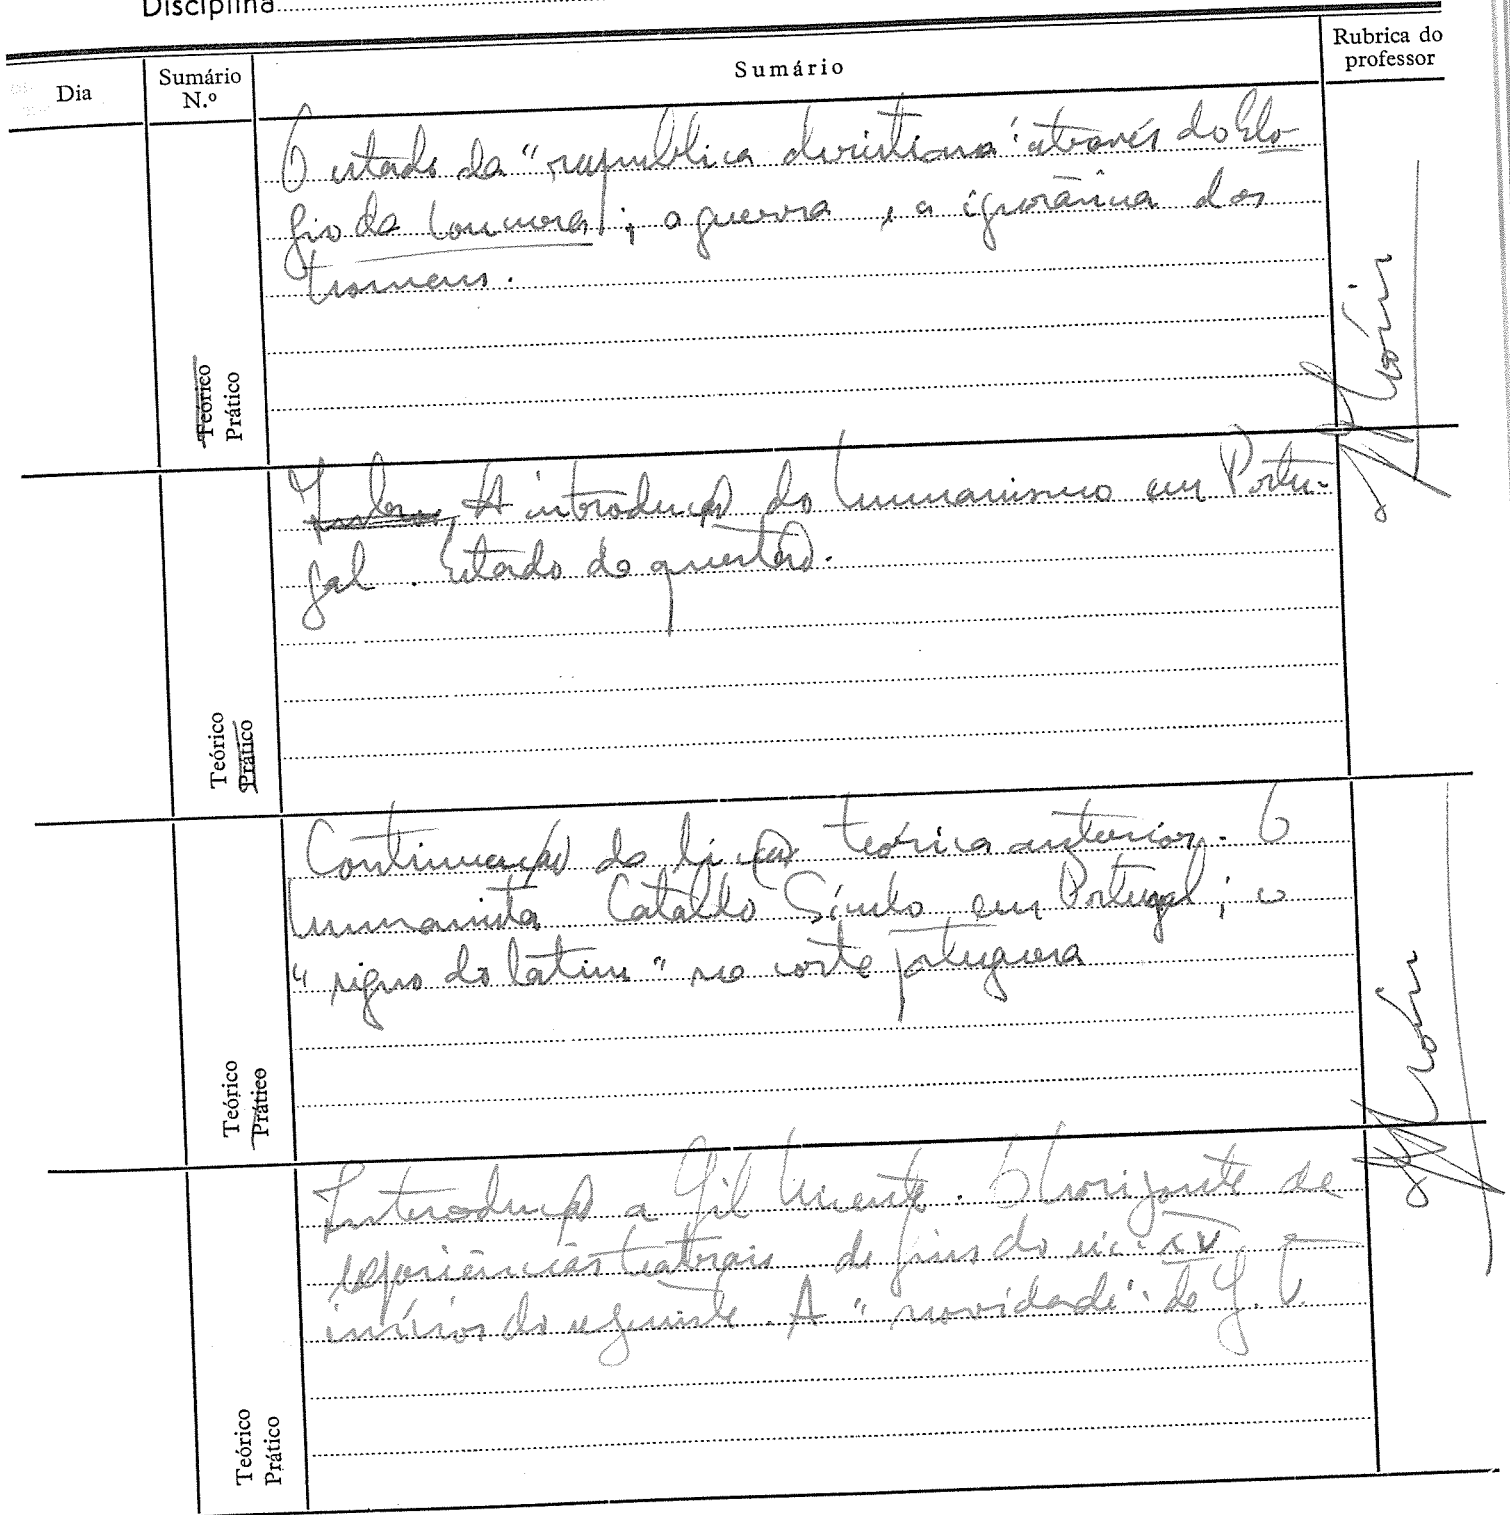 Disciplina
Dia
Sumário
N.º
Sumário
Rubrica do
professor
O estado da "republica christiana" através do Elo-
gio da Loucura; a guerra e a ignorância dos
homens.
Teórico
Prático
A introdução do humanismo em Portu-
gal. Estado da questão.
Teórico
Prático
Continuação da lição teórica anterior. O
humanista Cataldo Sículo em Portugal; o
"regno do latim" na corte portuguesa
Teórico
Prático
Introdução a Gil Vicente. O horizonte de
experiências teatrais de fins do séc. XV e
inícios do seguinte. A "novidade" de G. V.
Teórico
Prático